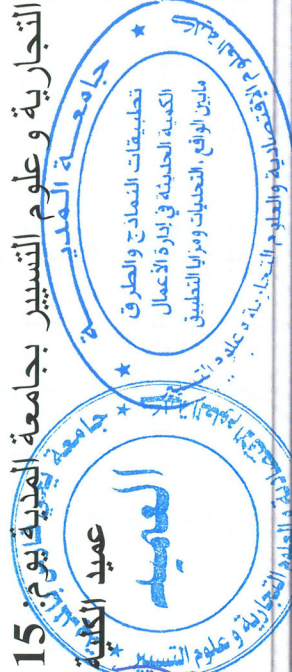 التجارية و علوم التسيير بجامعة المدية يوم: 15
عميد الكلية
العميد
جامعة المدية
تطبيقات النماذج والطرق
الكمية الحديثة في إدارة الأعمال
مابين الواقع، التحديات ومزايا التطبيق
كلية العلوم الإقتصادية والعلوم التجارية و علوم التسيير
جامعة
العلوم الاقتصادية و العلوم التجارية و علوم التسيير